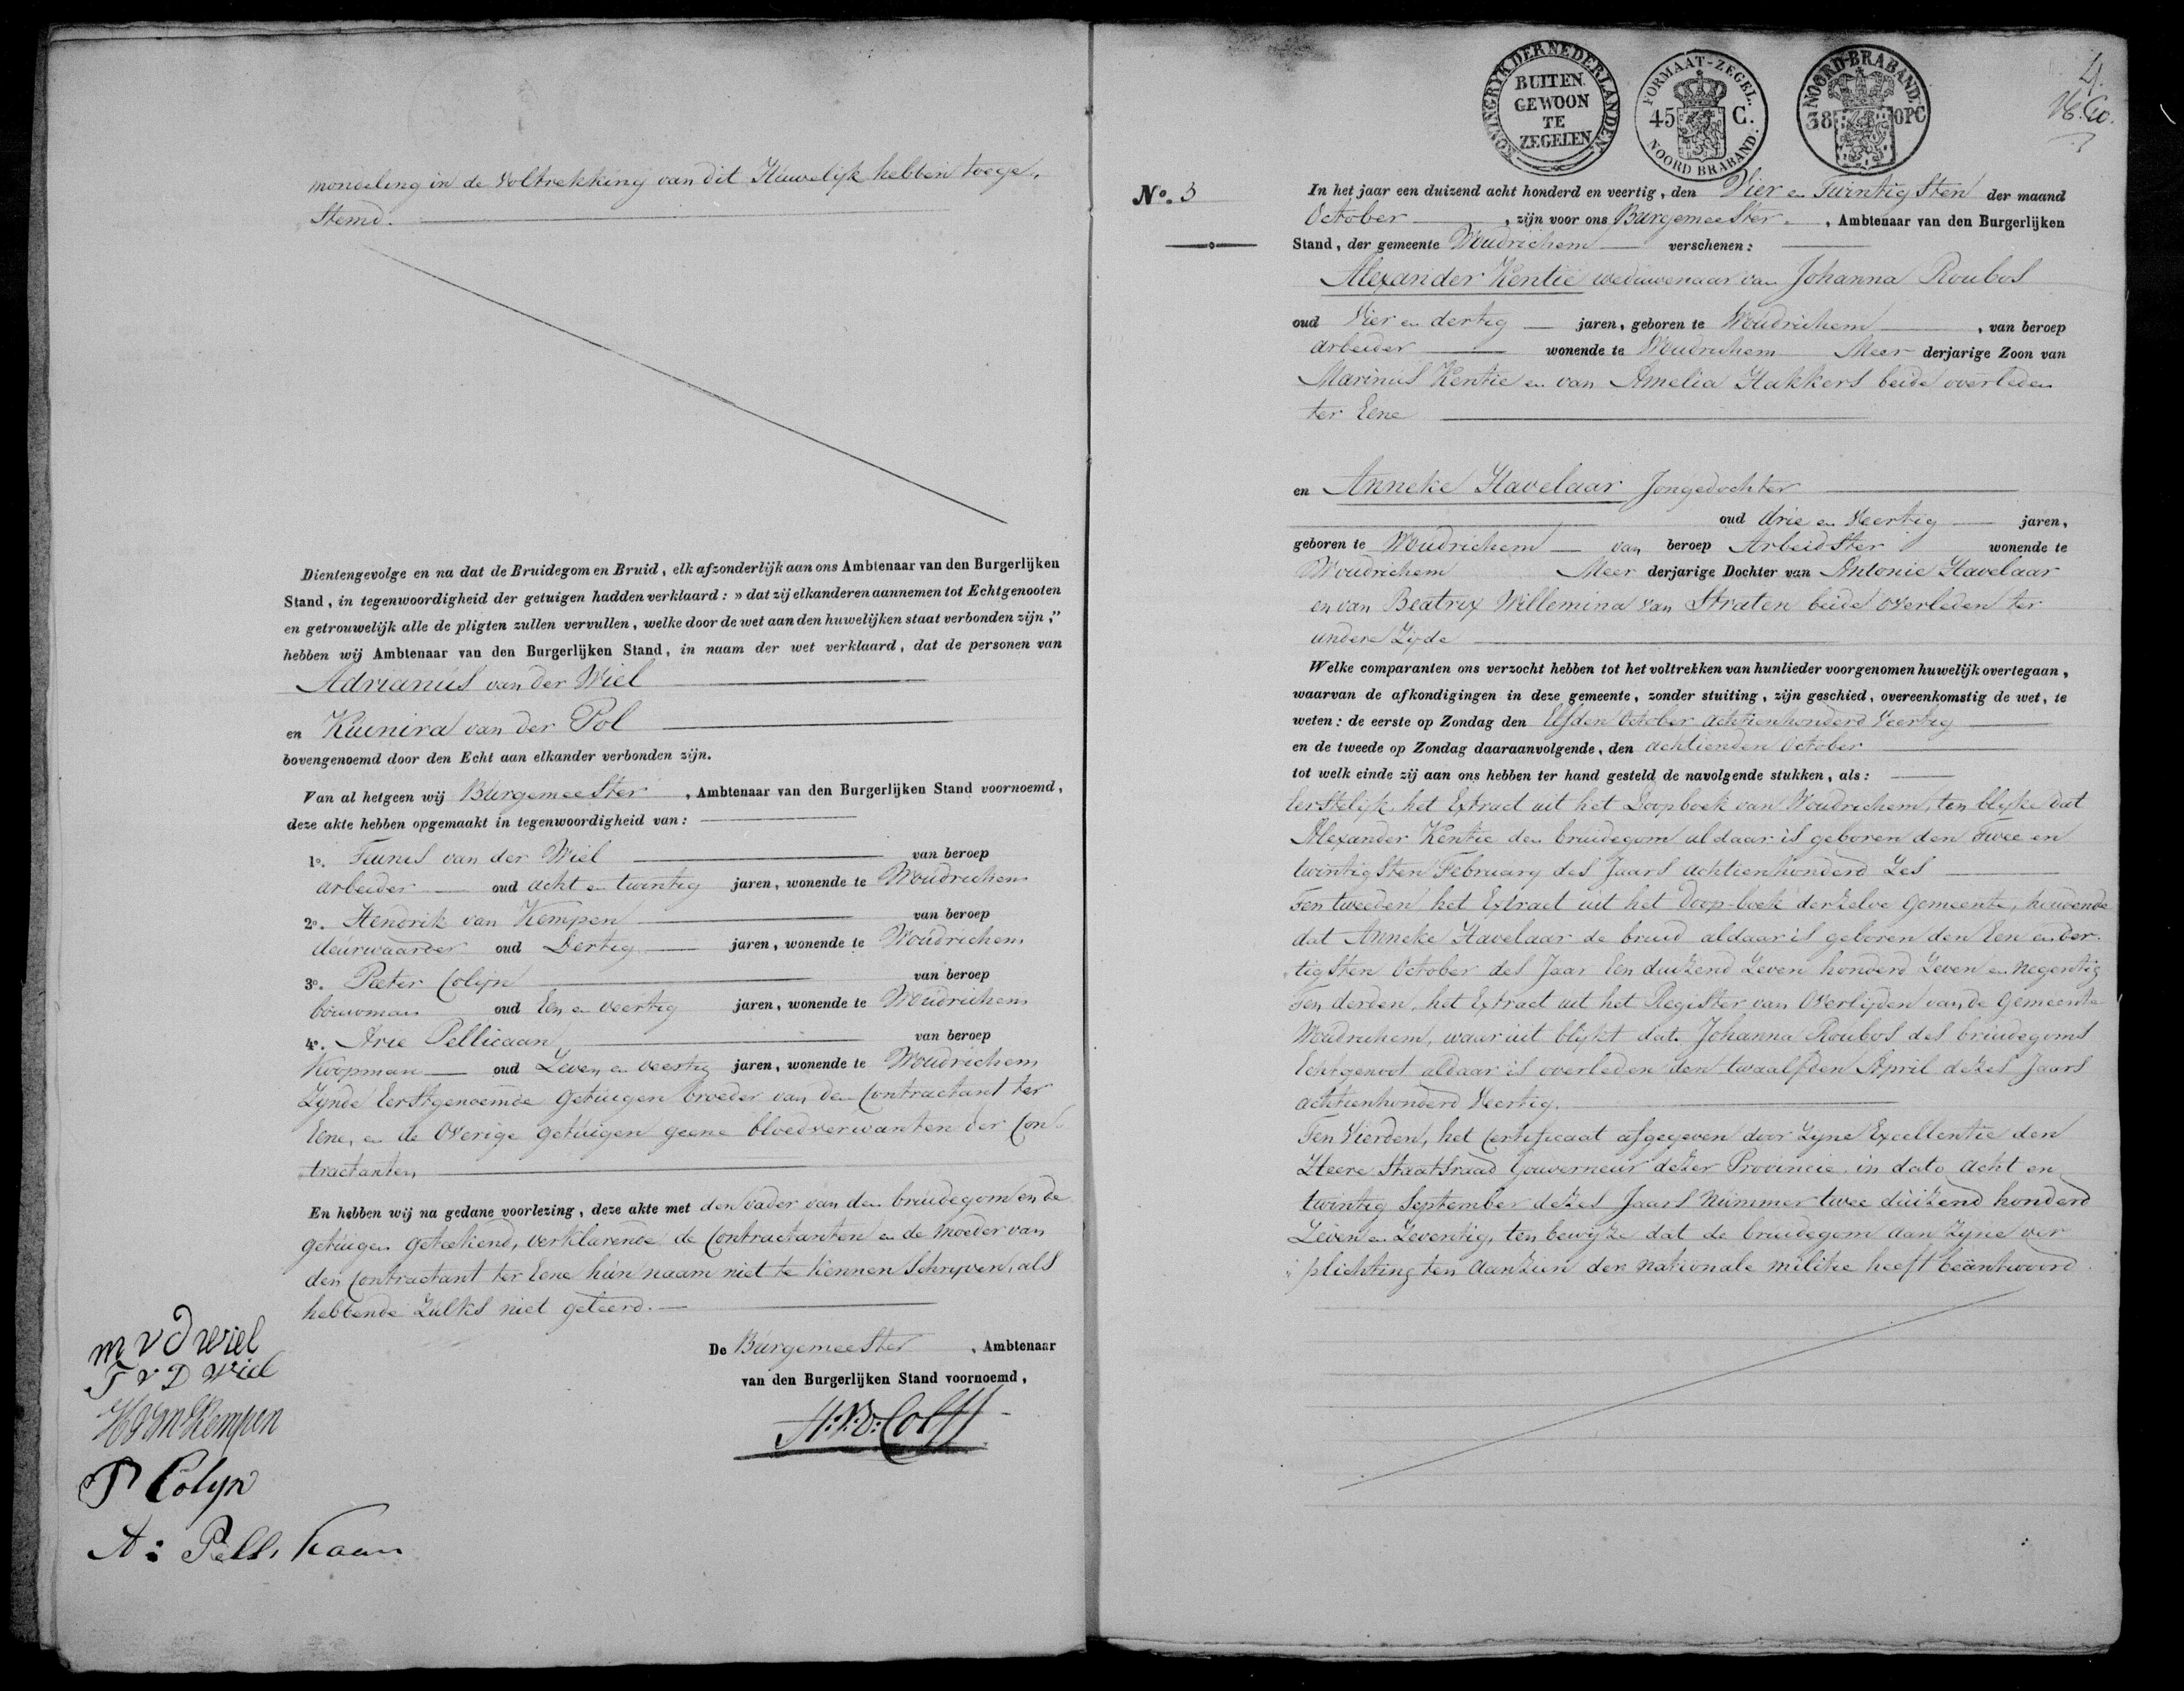 mondeling in de voltrekking van dit Huwelijk hebben toege„
stemd.
Dientengevolge en na dat de Bruidegom en Bruid, elk afzonderlijk aan ons Ambtenaar van den Burgerlijken
Stand, in tegenwoordigheid der getuigen hadden verklaard: » dat zij elkanderen aannemen tot Echtgenooten
en getrouwelijk alle de pligten zullen vervullen, welke door de wet aan den huwelijken staat verbonden zijn,"
hebben wij Ambtenaar van den Burgerlijken Stand, in naam der wet verklaard, dat de personen van
Adrianus van der Wiel
en Kunira van der Pol
bovengenoemd door den Echt aan elkander verbonden zijn.
Van al hetgeen wij Burgemeester, Ambtenaar van den Burgerlijken Stand voornoemd,
deze akte hebben opgemaakt in tegenwoordigheid van:
1o. Teunis van der Wiel van beroep
arbeider oud acht en twintig jaren, wonende te Woudrichem
2o. Hendrik van Kempen van beroep
deurwaarder oud Dertig jaren, wonende te Woudrichem
3o. Pieter Colijn van beroep
bouwman oud Een en veertig jaren, wonende te Woudrichem
4o. Arie Pellicaan van beroep
Koopman oud Zeven en veertig jaren, wonende te Woudrichem
Zijnde Eerstgenoemde getuigen broeder van den Contractant ter
Eene, en de Overige getuigen geene bloedverwanten der Con„
„tractanten
En hebben wij na gedane voorlezing, deze akte met den vader van den bruidegom en de
getuigen geteekend, verklarende de Contractanten en de moeder van
den Contractant ter Eene hun naam niet te kennen Schrijven, als
hebbende Zulks niet geleerd.
m v d wiel
T v D Wiel
H van Kempen
P Colijn
A: Pellikaan
De Burgemeester, Ambtenaar
van den Burgerlijken Stand voornoemd,
KONINGRYK DER NEDERLANDEN
BUITEN
GEWOON
TE
ZEGELEN
FORMAAT-ZEGEL.
45 C.
NOORD BRABAND.
NOORD-BRABAND.
38 OPC
4.
No. 3
In het jaar een duizend acht honderd en veertig, den Vier en Twintigsten der maand
October, zijn voor ons Burgemeester, Ambtenaar van den Burgerlijken
Stand, der gemeente Woudrichem verschenen:
Alexander Kentie weduwenaar van Johanna Roubos
oud Vier en dertig jaren, geboren te Woudrichem, van beroep
arbeider wonende te Woudrichem Meer derjarige Zoon van
Marinus Kentie en van Amelia Hakkers beide overleden
ter Eene
en Anneke Havelaar Jongedochter
oud drie en Veertig jaren,
geboren te Woudrichem van beroep Arbeidster wonende te
Woudrichem Meer derjarige Dochter van Antonie Havelaar
en van Beatrix Willemina van Straten beide overleden ter
andere Zijde
Welke comparanten ons verzocht hebben tot het voltrekken van hunlieder voorgenomen huwelijk overtegaan,
waarvan de afkondigingen in deze gemeente, zonder stuiting, zijn geschied, overeenkomstig de wet, te
weten: de eerste op Zondag den Elfden October achtienhonderd Veertig
en de tweede op Zondag daaraanvolgende, den achtienden October
tot welk einde zij aan ons hebben ter hand gesteld de navolgende stukken, als:
Eerstelijk, het Extract uit het Doopboek van Woudrichem, ten blijke dat
Alexander Kentie den bruidegom aldaar is geboren den Twee en
twintigsten February des Jaars achtienhonderd Zes
Ten tweeden het Extract uit het Doop-boek derzelve Gemeente, houdende
dat Anneke Havelaar de bruid aldaar is geboren den Een en der„
„tigsten October des Jaar Een duizend Zeven honderd Zeven en negentig
Ten derden, het Extract uit het Register van Overlijden van de Gemeente
Woudrichem, waar uit blijkt dat Johanna Roubos des bruidegoms
Echtgenoot aldaar is overleden den twaalfden April dezes Jaars
achtienhonderd Veertig.
Ten Vierden, het Certificaat afgegeven door Zijne Excellentie den
Heere Staatsraad Gouverneur dezer Provincie in dato acht en
twintig September dezes Jaars Nummer twee duizend honderd
Zeven en Zeventig, ten bewijze dat de bruidegom aan Zijne ver
„plichting ten aanzien der nationale militie heeft beantwoord.